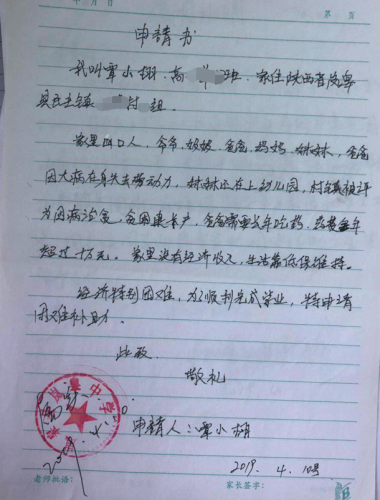 第 页
申请书
我叫覃小翔, 高 班. 家住陕西省岚皋
县民主镇 村 组.
家里四口人, 爷爷, 奶奶, 爸爸, 妈妈, 妹妹, 爸爸
因大病在身失去劳动力, 妹妹还在上幼儿园, 村镇被评
为因病治贫, 贫困建卡户, 爸爸需要长年吃药, 药费每年
超过十万元. 家里没有经济收入, 生活靠低保维持.
经济特别困难, 为了顺利完成学业, 特申请
困难补助.
此致
敬礼
申请人: 覃小翔
2019. 4. 10号
老师批语: 家长签字: